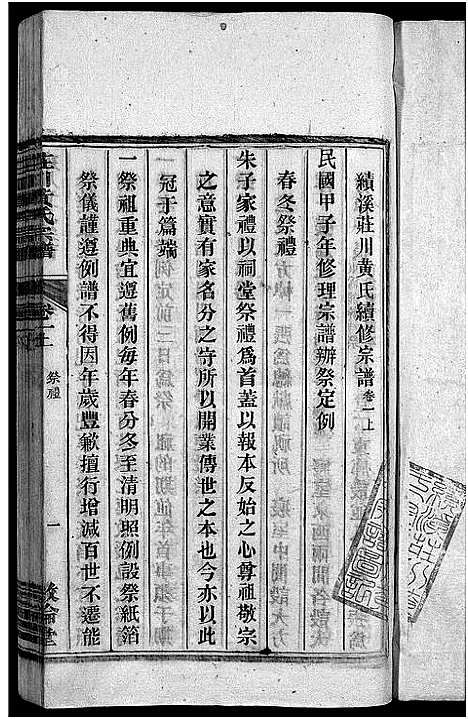 績溪莊川黄氏續修宗譜卷一上
民國甲子年修理宗譜辦祭定例
春冬祭禮
朱子家禮以祠堂祭禮爲首蓋以報本反始之心尊祖敬宗
之意實有家名分之守所以開業傳世之本也今亦以此
冠于篇端
一祭祖重典宜遵舊例每年春分冬至清明照例設祭紙箔
祭儀謹遵例譜不得因年歲豐歉擅行增減百世不遷能
莊川黄氏宗譜
卷一上
祭禮
一
敍倫堂